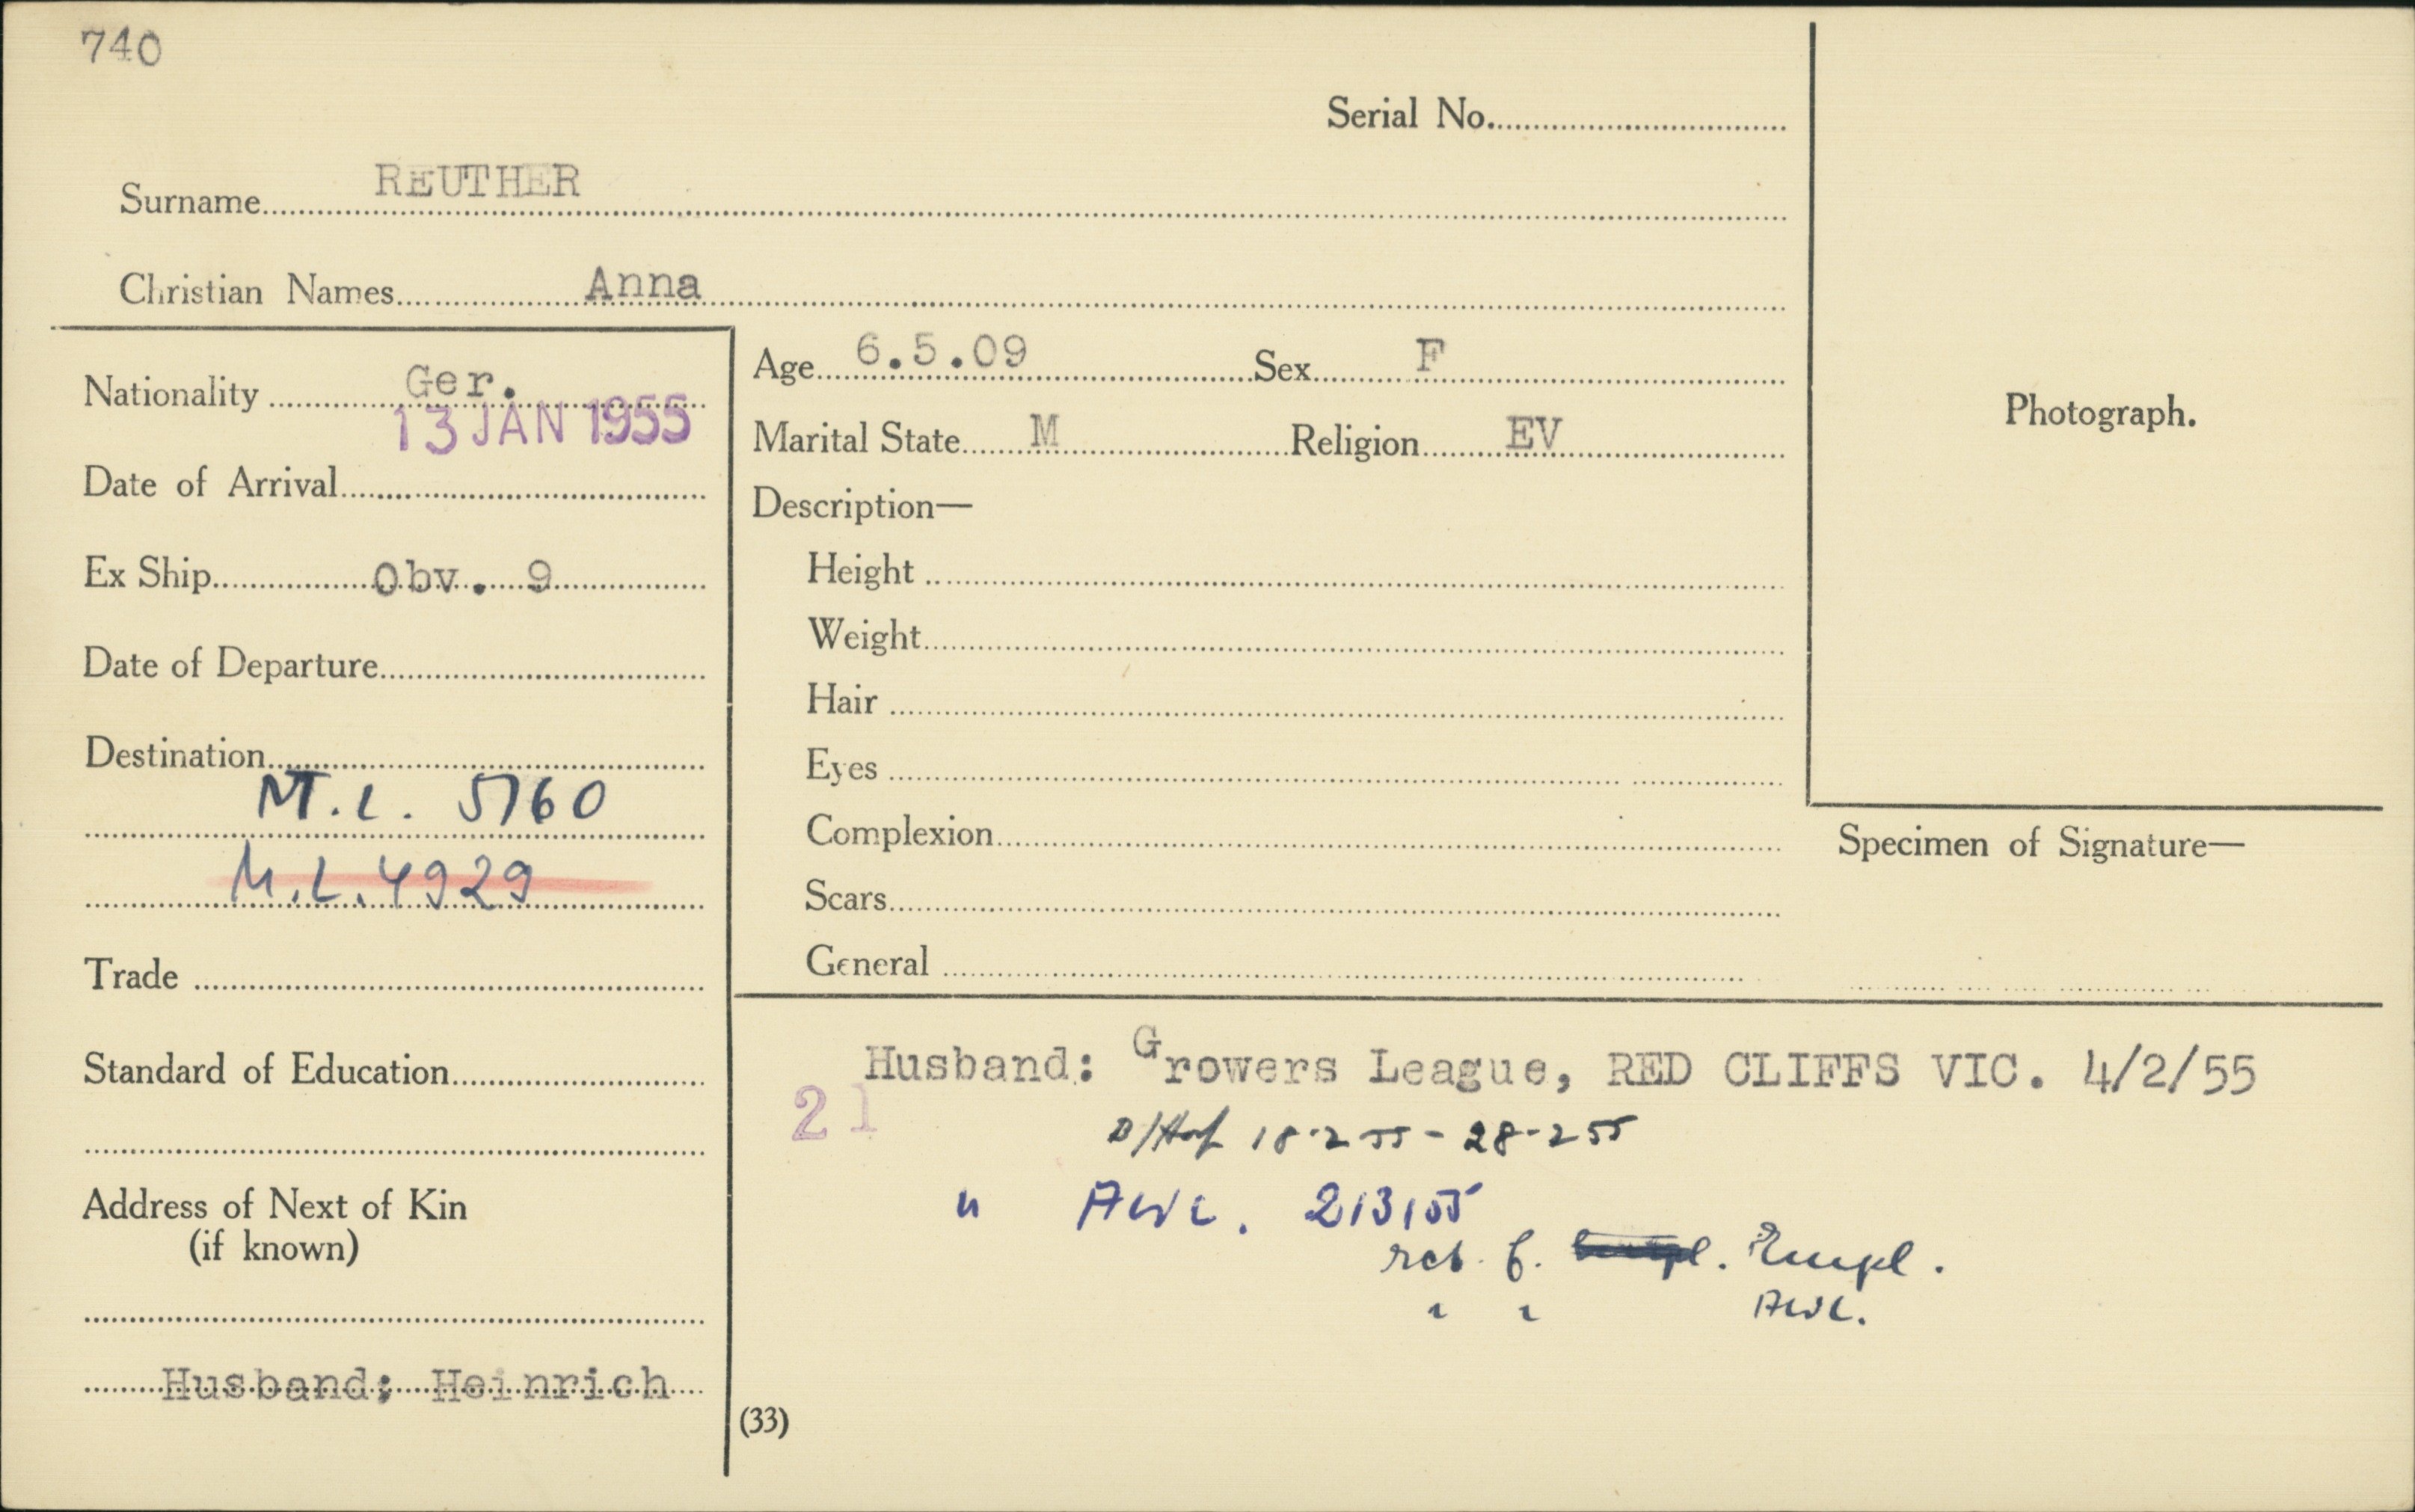 740
Serial No.
Surname REUTHER
Christian Names Anna
Nationality Ger.
13 JAN 1955
Date of Arrival
Ex Ship Obv. 9
Date of Departure
Destination
M.L. 5160
M.L. 4929
Trade
Standard of Education
Address of Next of Kin
(if known)
Husband; Heinrich
Age 6.5.09 Sex F
Marital State M Religion EV
Description—
Height
Weight
Hair
Eyes
Complexion
Scars
General
Photograph.
Specimen of Signature—
Husband: Growers League, RED CLIFFS VIC. 4/2/55
21
18-2-55 - 28-2-55
" AWL. 2/3/55
ret. f. Empl.
" " AWL.
(33)